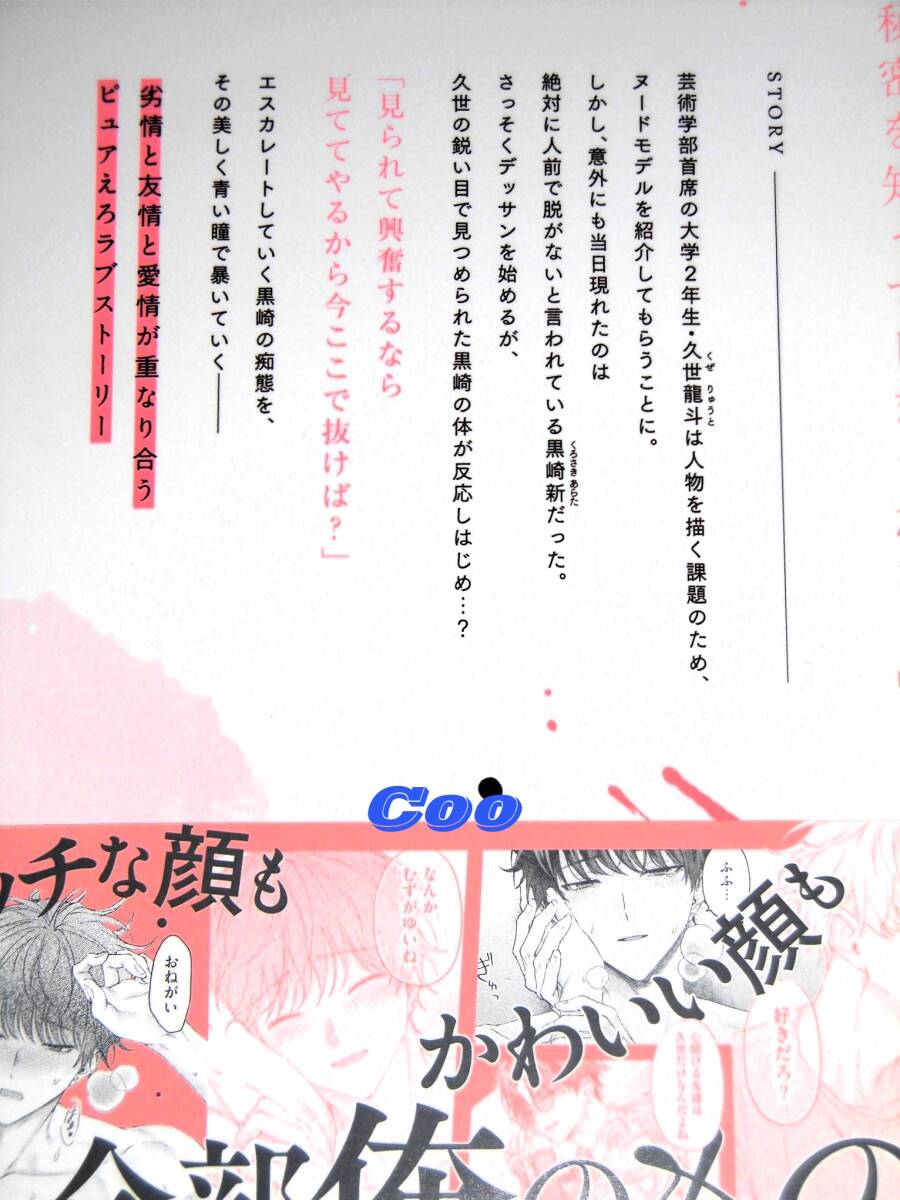 秘密を知って
STORY
芸術学部首席の大学2年生・久世龍斗は人物を描く課題のため、
くぜ りゅうと
ヌードモデルを紹介してもらうことに。
しかし、意外にも当日現れたのは
絶対に人前で脱がないと言われている黒崎新だった。
くろさき あらた
さっそくデッサンを始めるが、
久世の鋭い目で見つめられた黒崎の体が反応しはじめ…?
「見られて興奮するなら
見ててやるから今ここで抜けば?」
エスカレートしていく黒崎の痴態を、
その美しく青い瞳で暴いていく――
劣情と友情と愛情が重なり合う
ピュアえろラブストーリー
Coo
ッチな顔も
かわいい顔も
全部俺のもの
おねがい
なんか、
むずがゆいね
ふふ…
ぎゅっ
好きだろ?